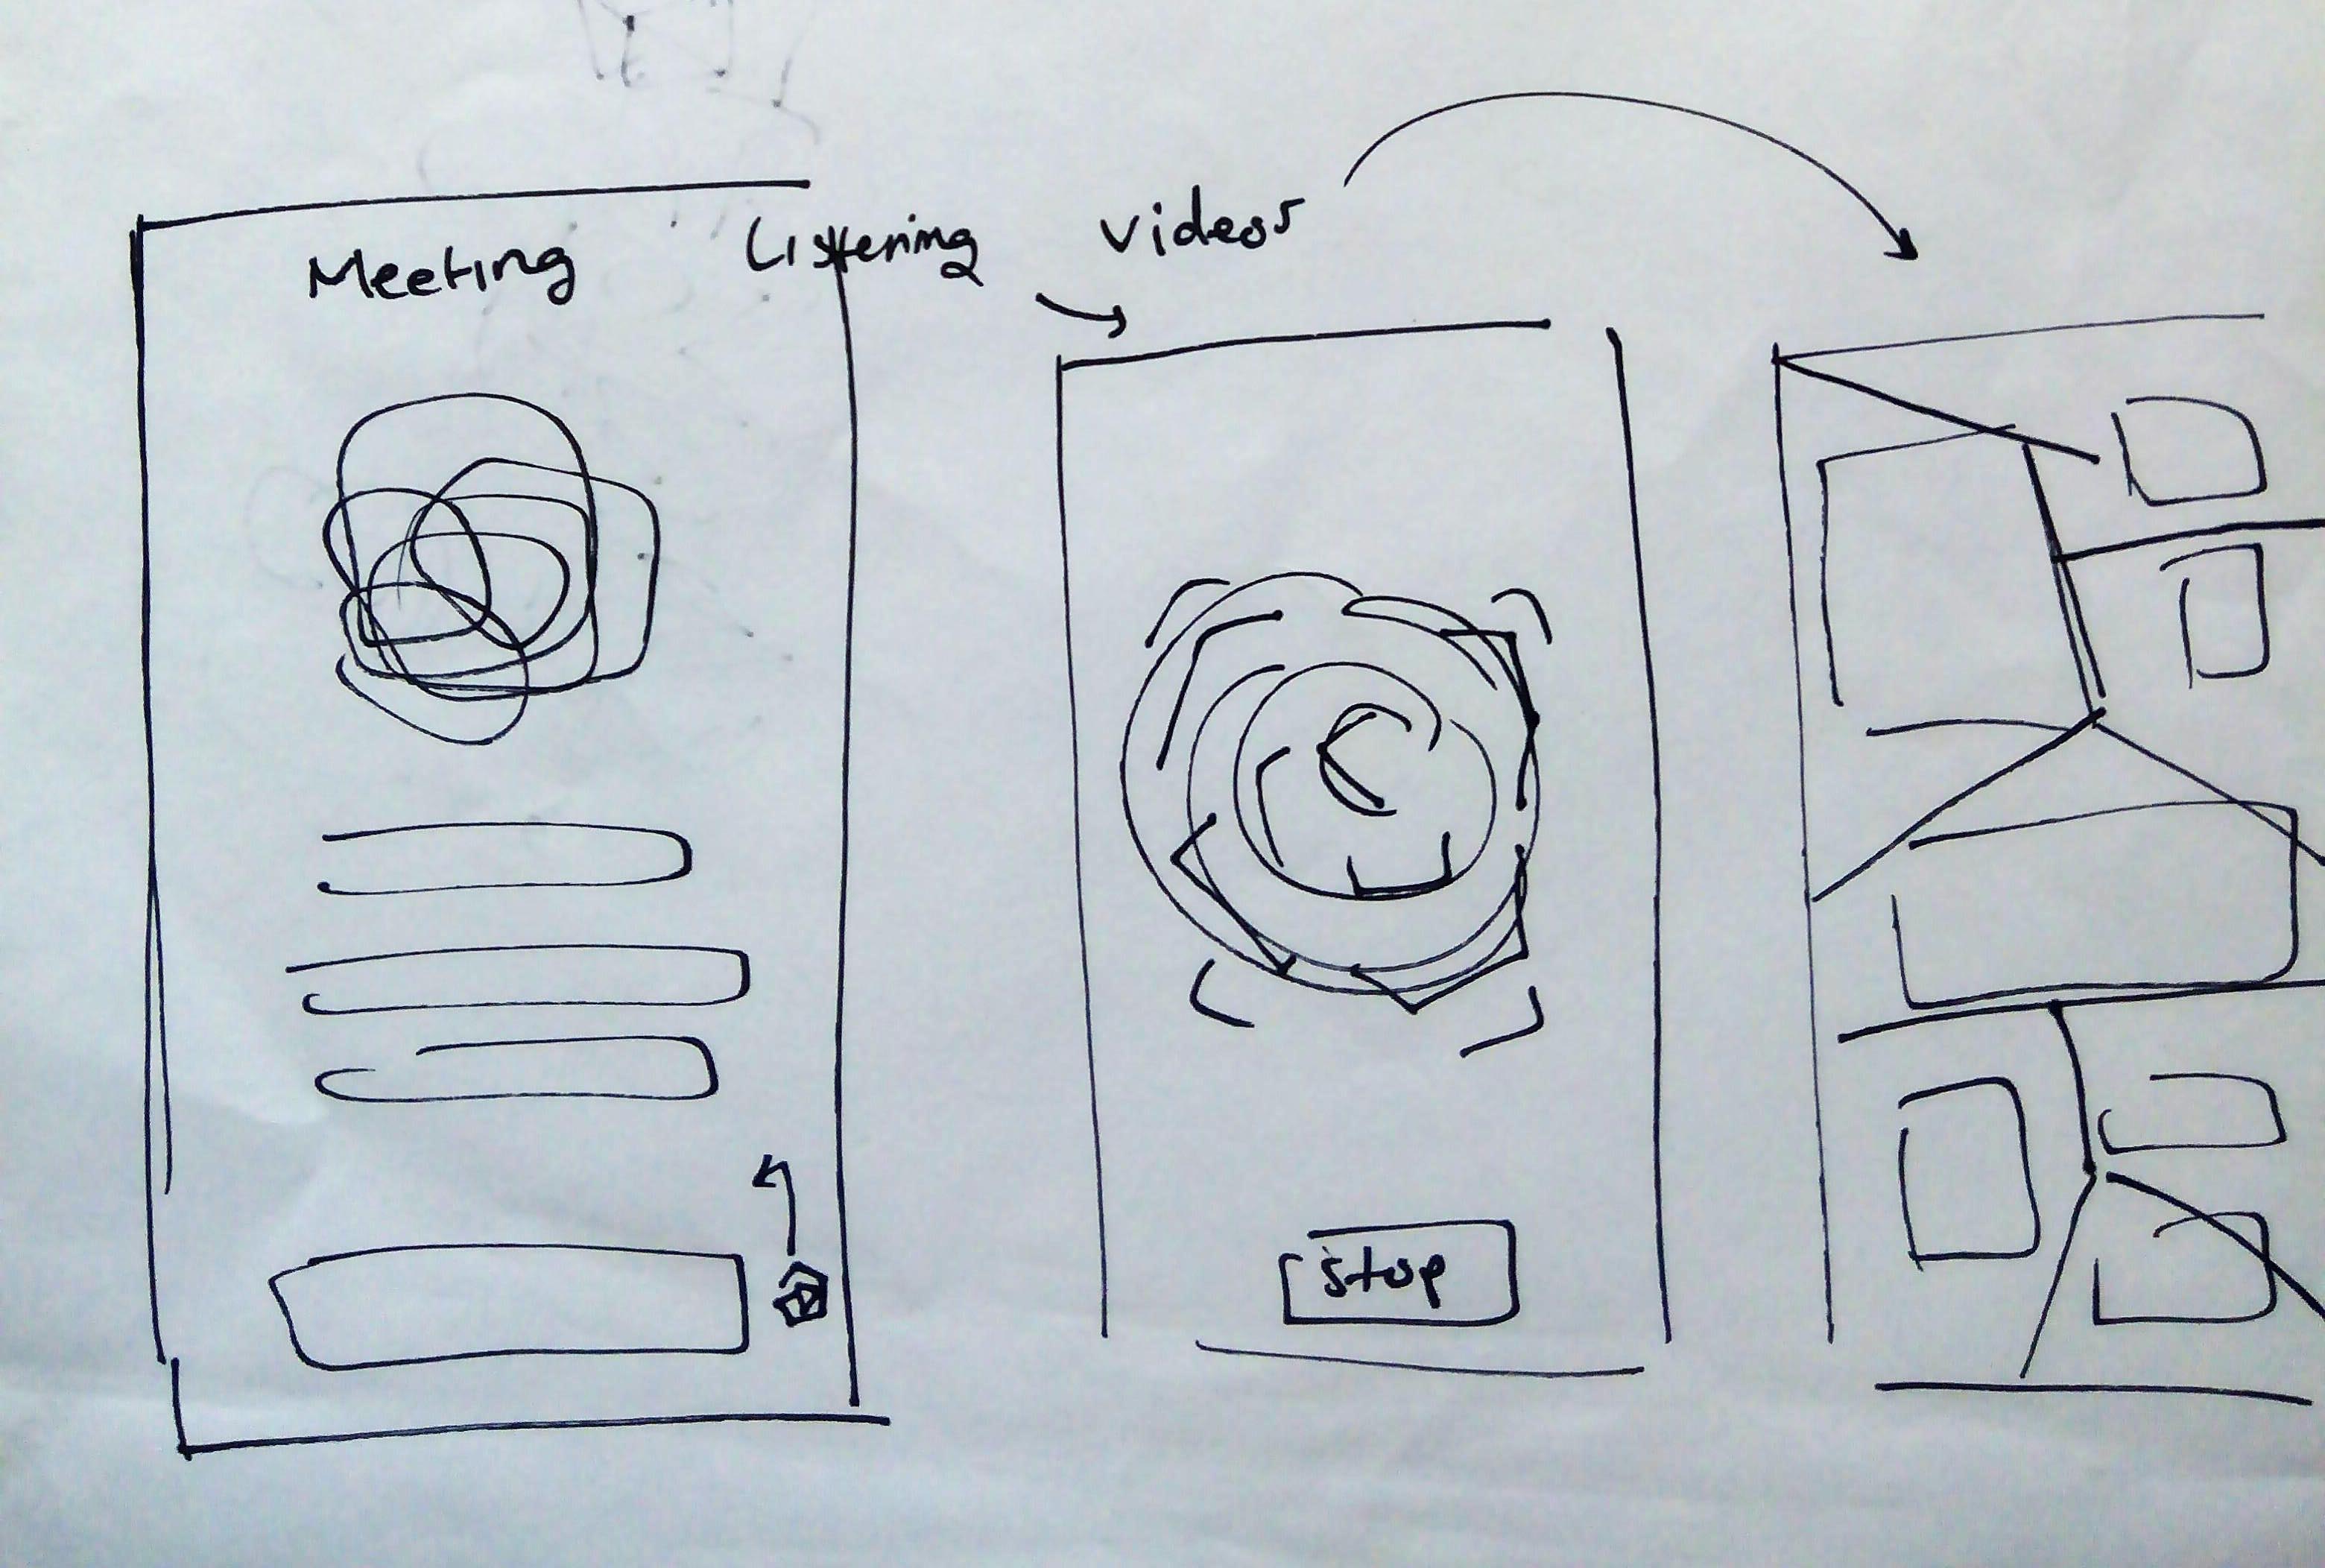 Meeting
Listening
videos
stop